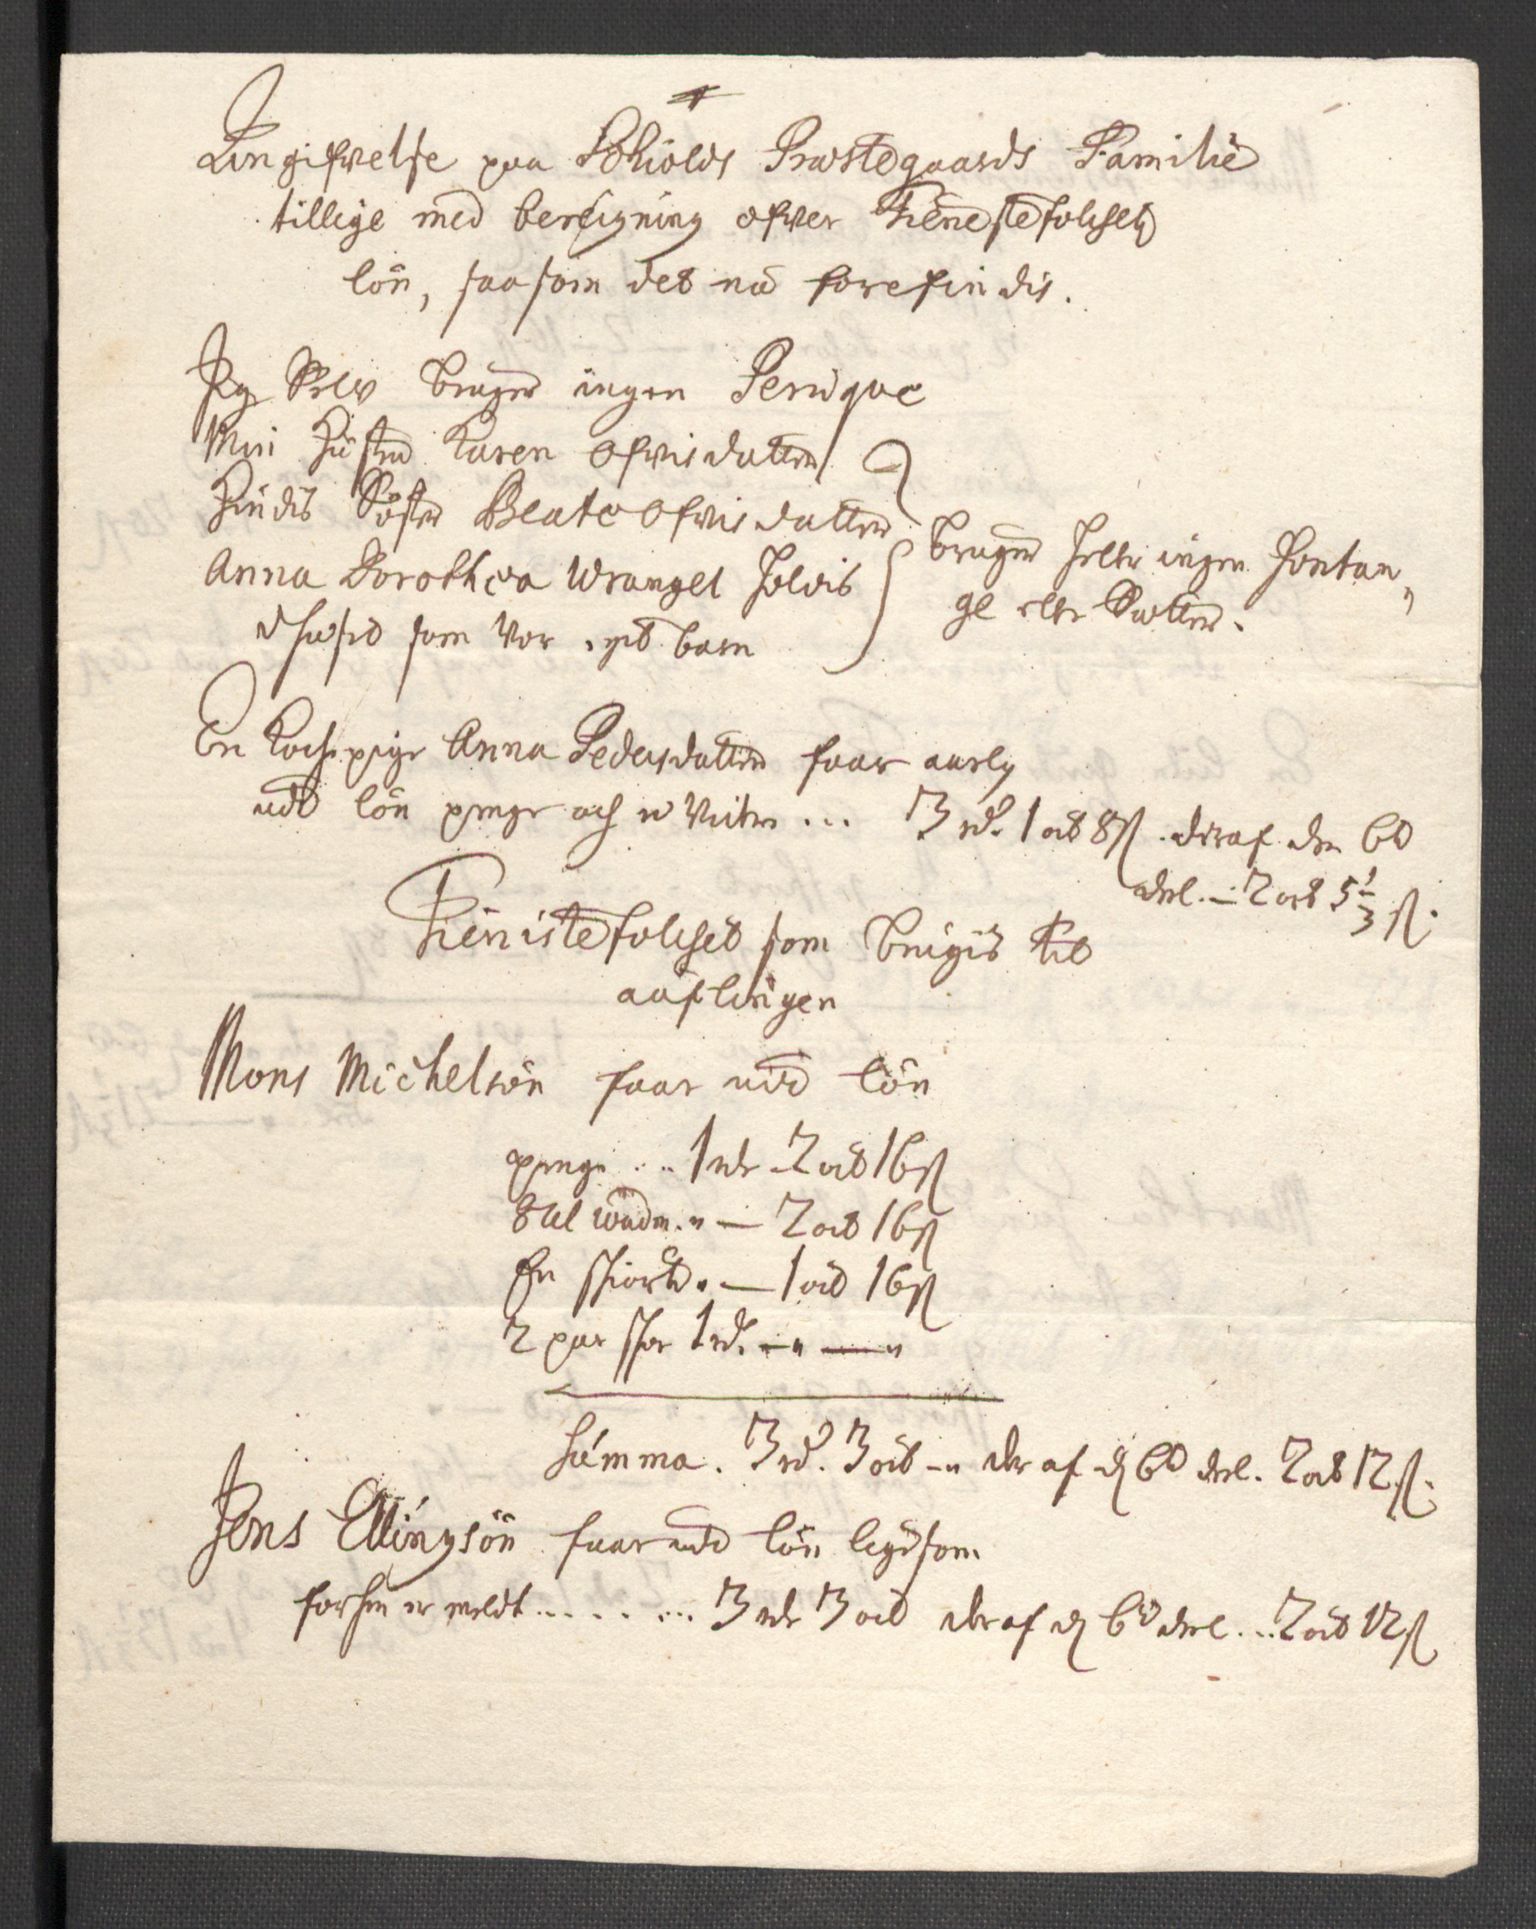 Angifwelse paa Schiolds Præstegaards Familie
tillige med beregning ofwer Tienestefolchets
lön, saasom det nu forefindis.
Jeg Self bruger ingen Peruque
Min Hustru Karen Ofwisdatter
Hindis Søster Beate Ofwisdatter
Anna Dorothea Wrangel holdis
som vor eget barn
bruger heller ingen Fontan-
ge eller
En Kochepige Anna Pedersdatter faar aarlig
udi lön penge och 3 rdr. 1 ort 8 ß. deraf den 6te
deel. – 2 ort 5 1/3 ß.
Tienistefolchet som brugis til
auflingen
Mons Michelsön faar udi lön
penge ... 1 rdr 2 ort 16 ß
8 all wadm. " — 2 ort 16 ß
En skiorte " — 1 ort 16 ß
2 par skoe 1 rdr. — " — "
Summa. 3 rdr. 3 ort — " der af d 6te deel. 2 ort 12 ß.
Jens Ellingsön faar udi lön ligesom
forhen er meldt ........ 3 rdr 3 ort der af d 6te deel ... 2 ort 12 ß